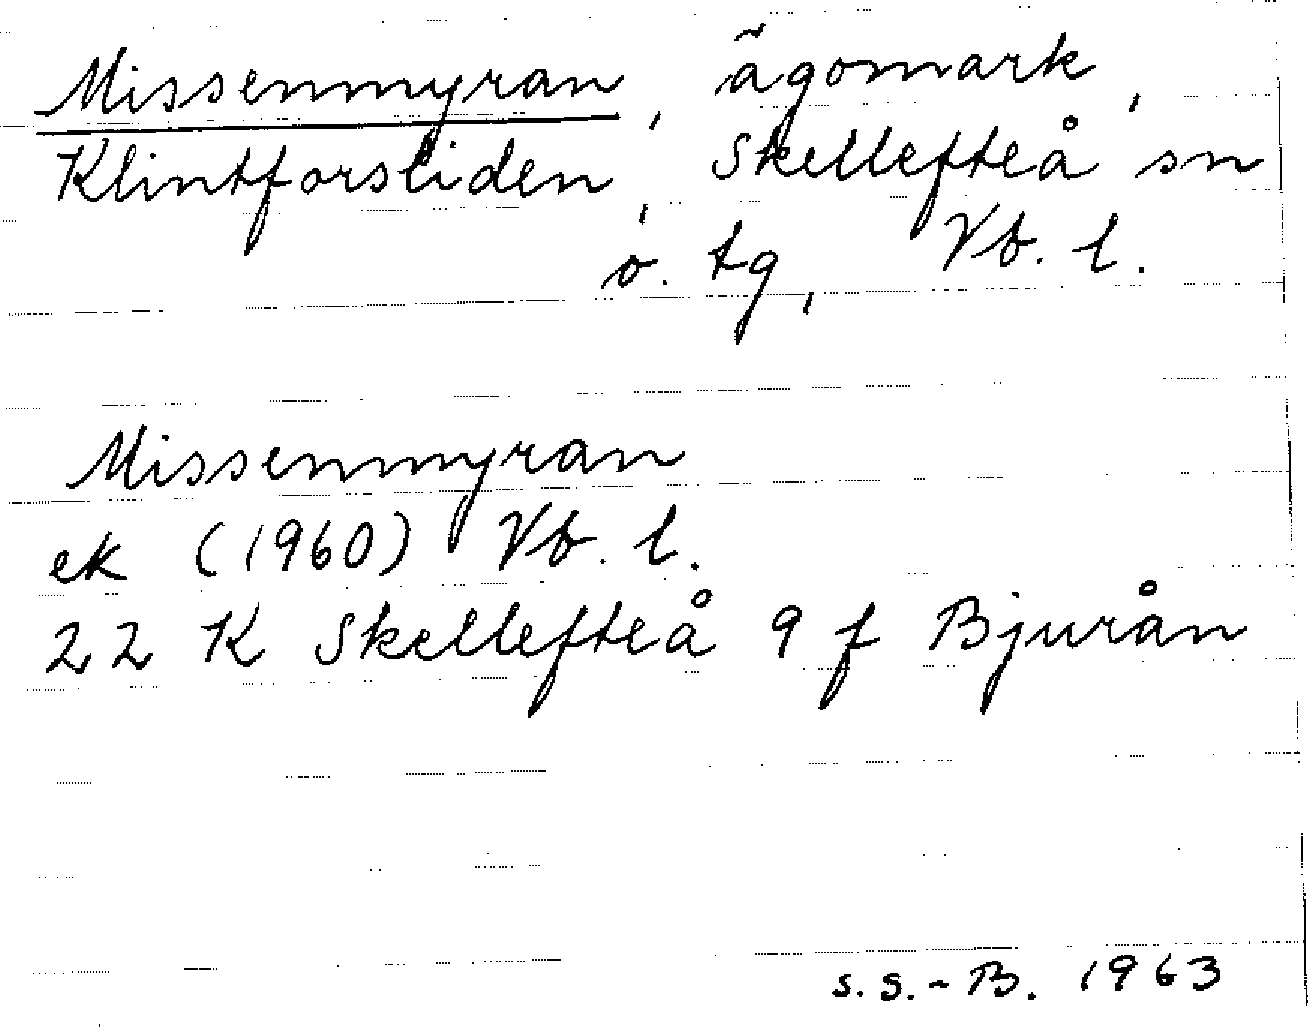 Missenmyran, ägomark,
Klintforsliden, Skellefteå sn
o. tg, Vb. l.
Missenmyran
ek (1960) Vb. l.
22 K Skellefteå 9 f Bjurån
S. S.-B. 1963